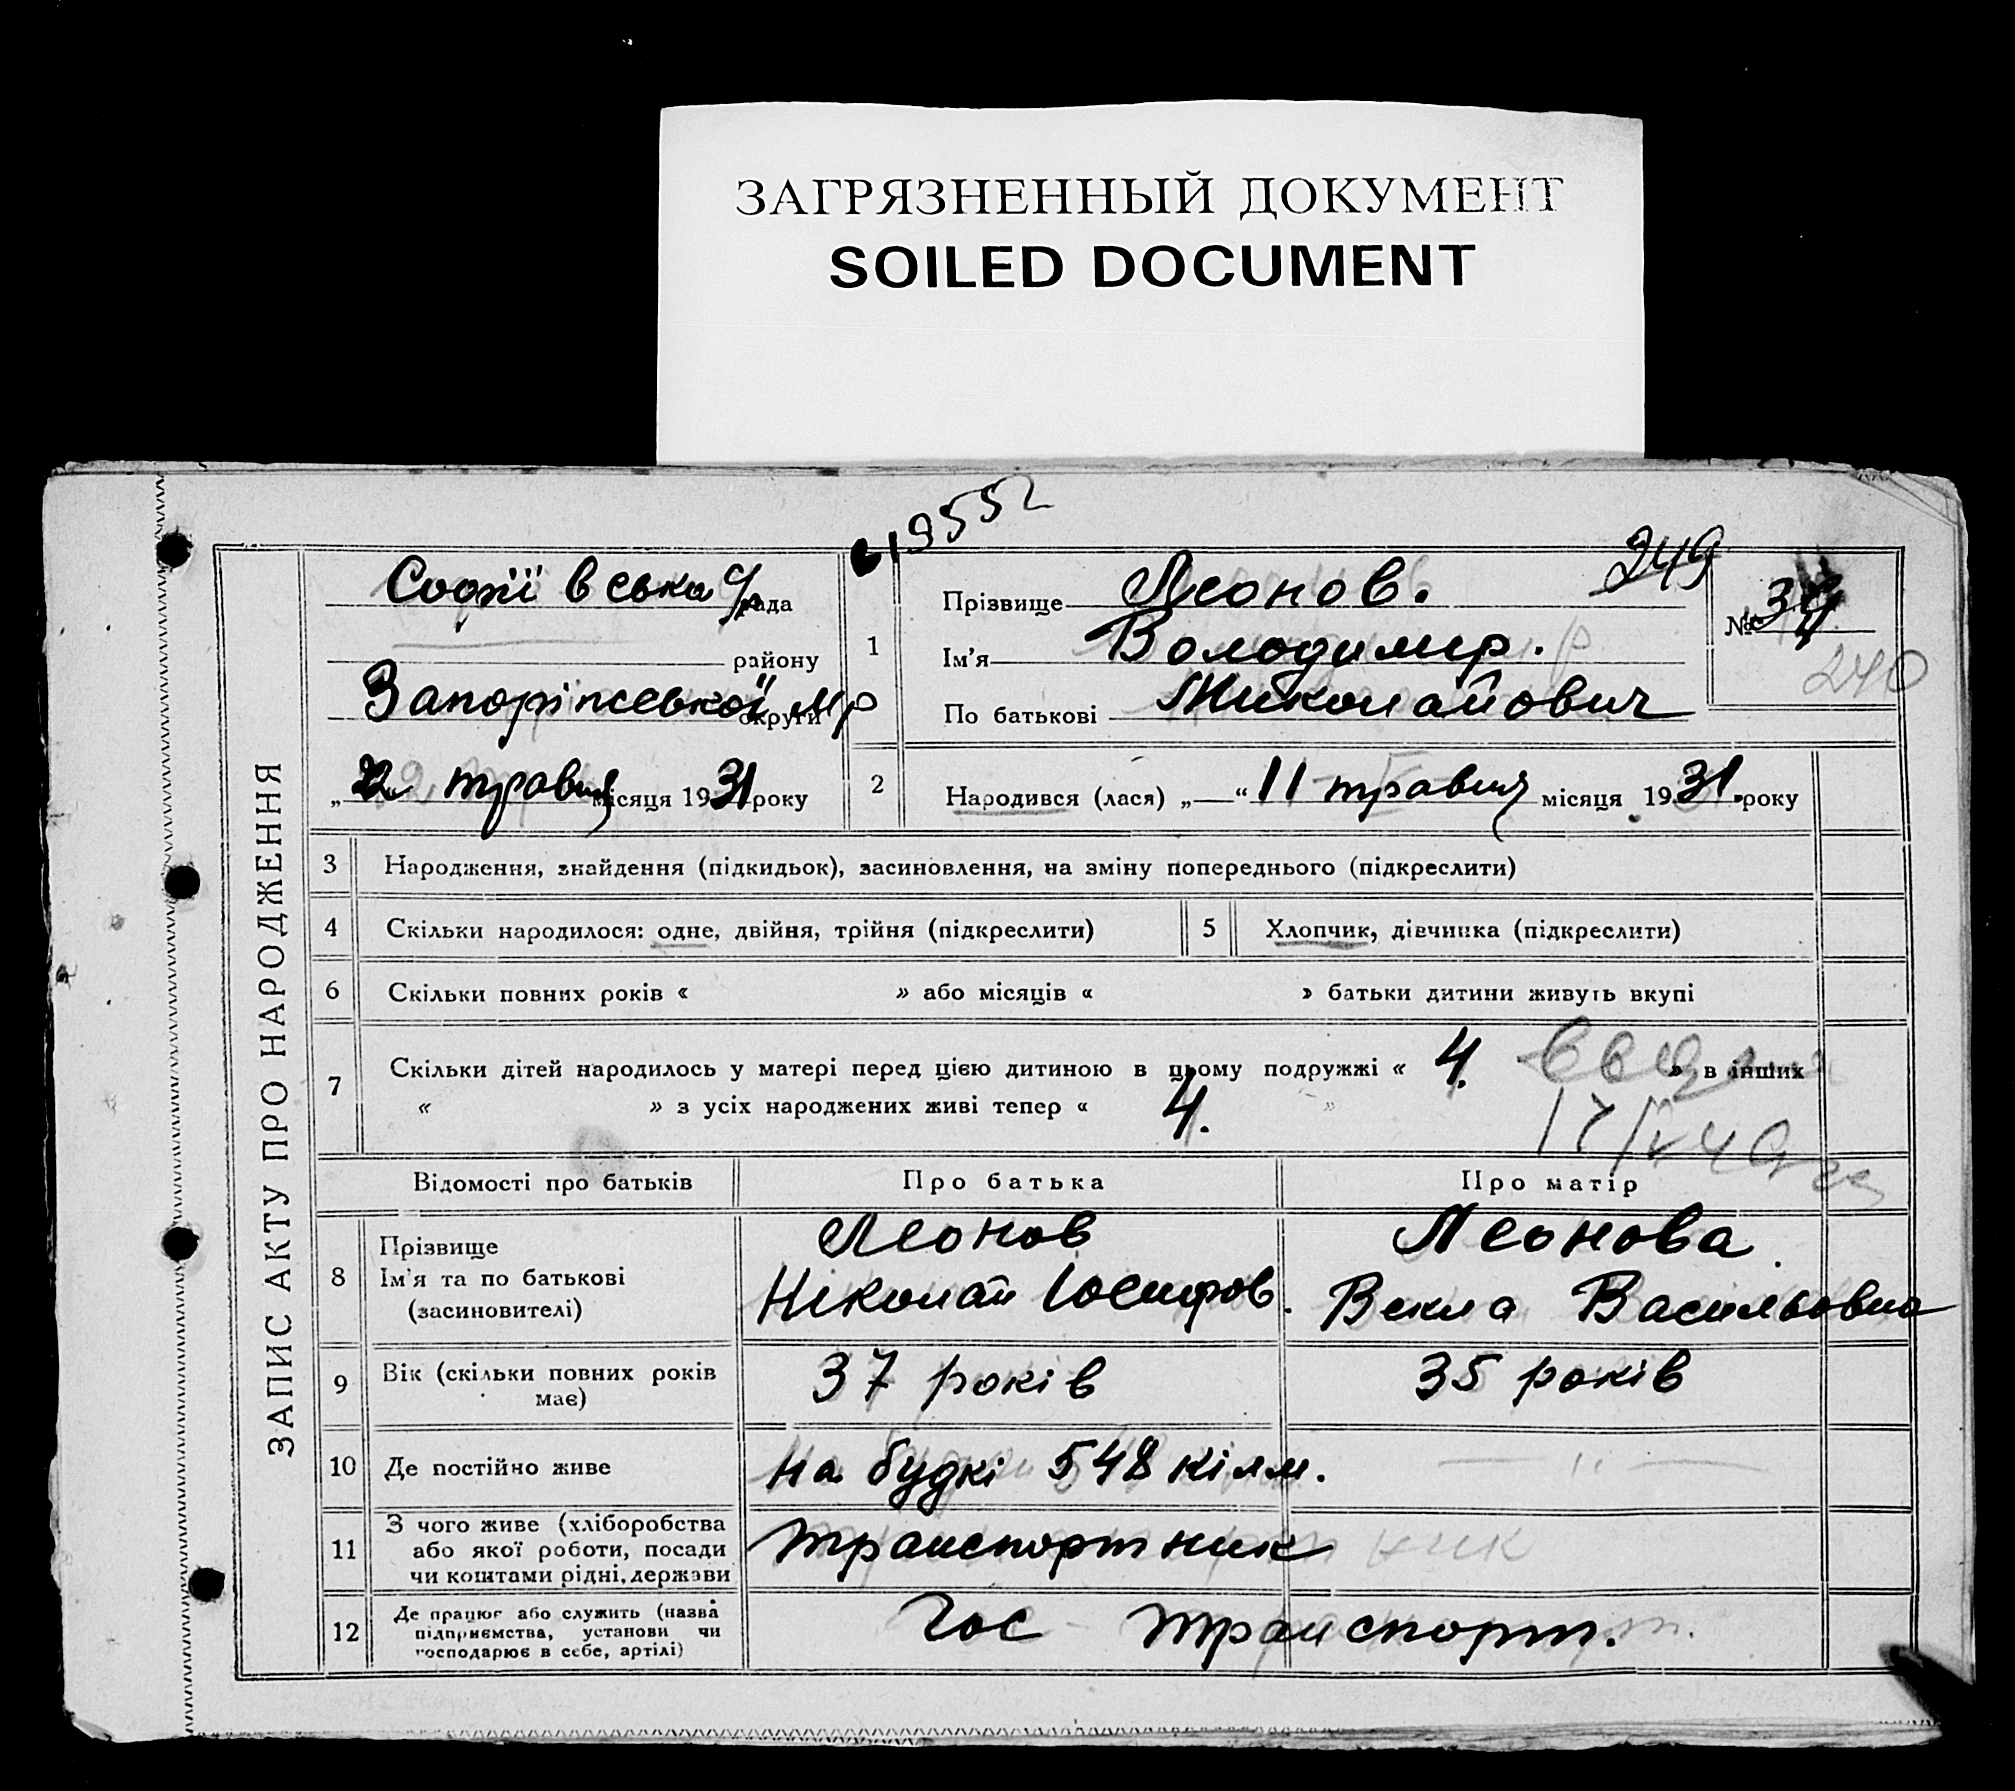 ЗАГРЯЗНЕННЫЙ ДОКУМЕНТ
SOILED DOCUMENT
19552
249
ЗАПИС АКТУ ПРО НАРОДЖЕННЯ
Софіївська с/рада
району
Запоріжської мр округи
„22 травня місяця 1931 року
1
Прізвище Леонов.
Ім'я Володимир.
По батькові Миколайович
№ 34
240
2
Народився (лася) „ “ 11 травня місяця 1931. року
3 Народження, знайдення (підкидьок), засиновлення, на зміну попереднього (підкреслити)
4 Скільки народилося: одне, двійня, трійня (підкреслити)
5 Хлопчик, дівчинка (підкреслити)
6 Скільки повних років « » або місяців « » батьки дитини живуть вкупі
7 Скільки дітей народилось у матері перед цією дитиною в цьому подружжі « 4. » в інших
« » з усіх народжених живі тепер « 4. »
Відомості про батьків Про батька Про матір
8 Прізвище
Ім'я та по батькові
(засиновителі)
Леонов
Ніколай Іосифов.
Леонова
Векла Васильовна
9 Вік (скільки повних років
має)
37 років
35 років
10 Де постійно живе
на будкі 548 кілм.
— " —
11 З чого живе (хліборобства
або якої роботи, посади
чи коштами рідні, держави
транспортник
12 Де працює або служить (назва
підприємства, установи чи
господарює в себе, артілі)
Гос - транспорт.